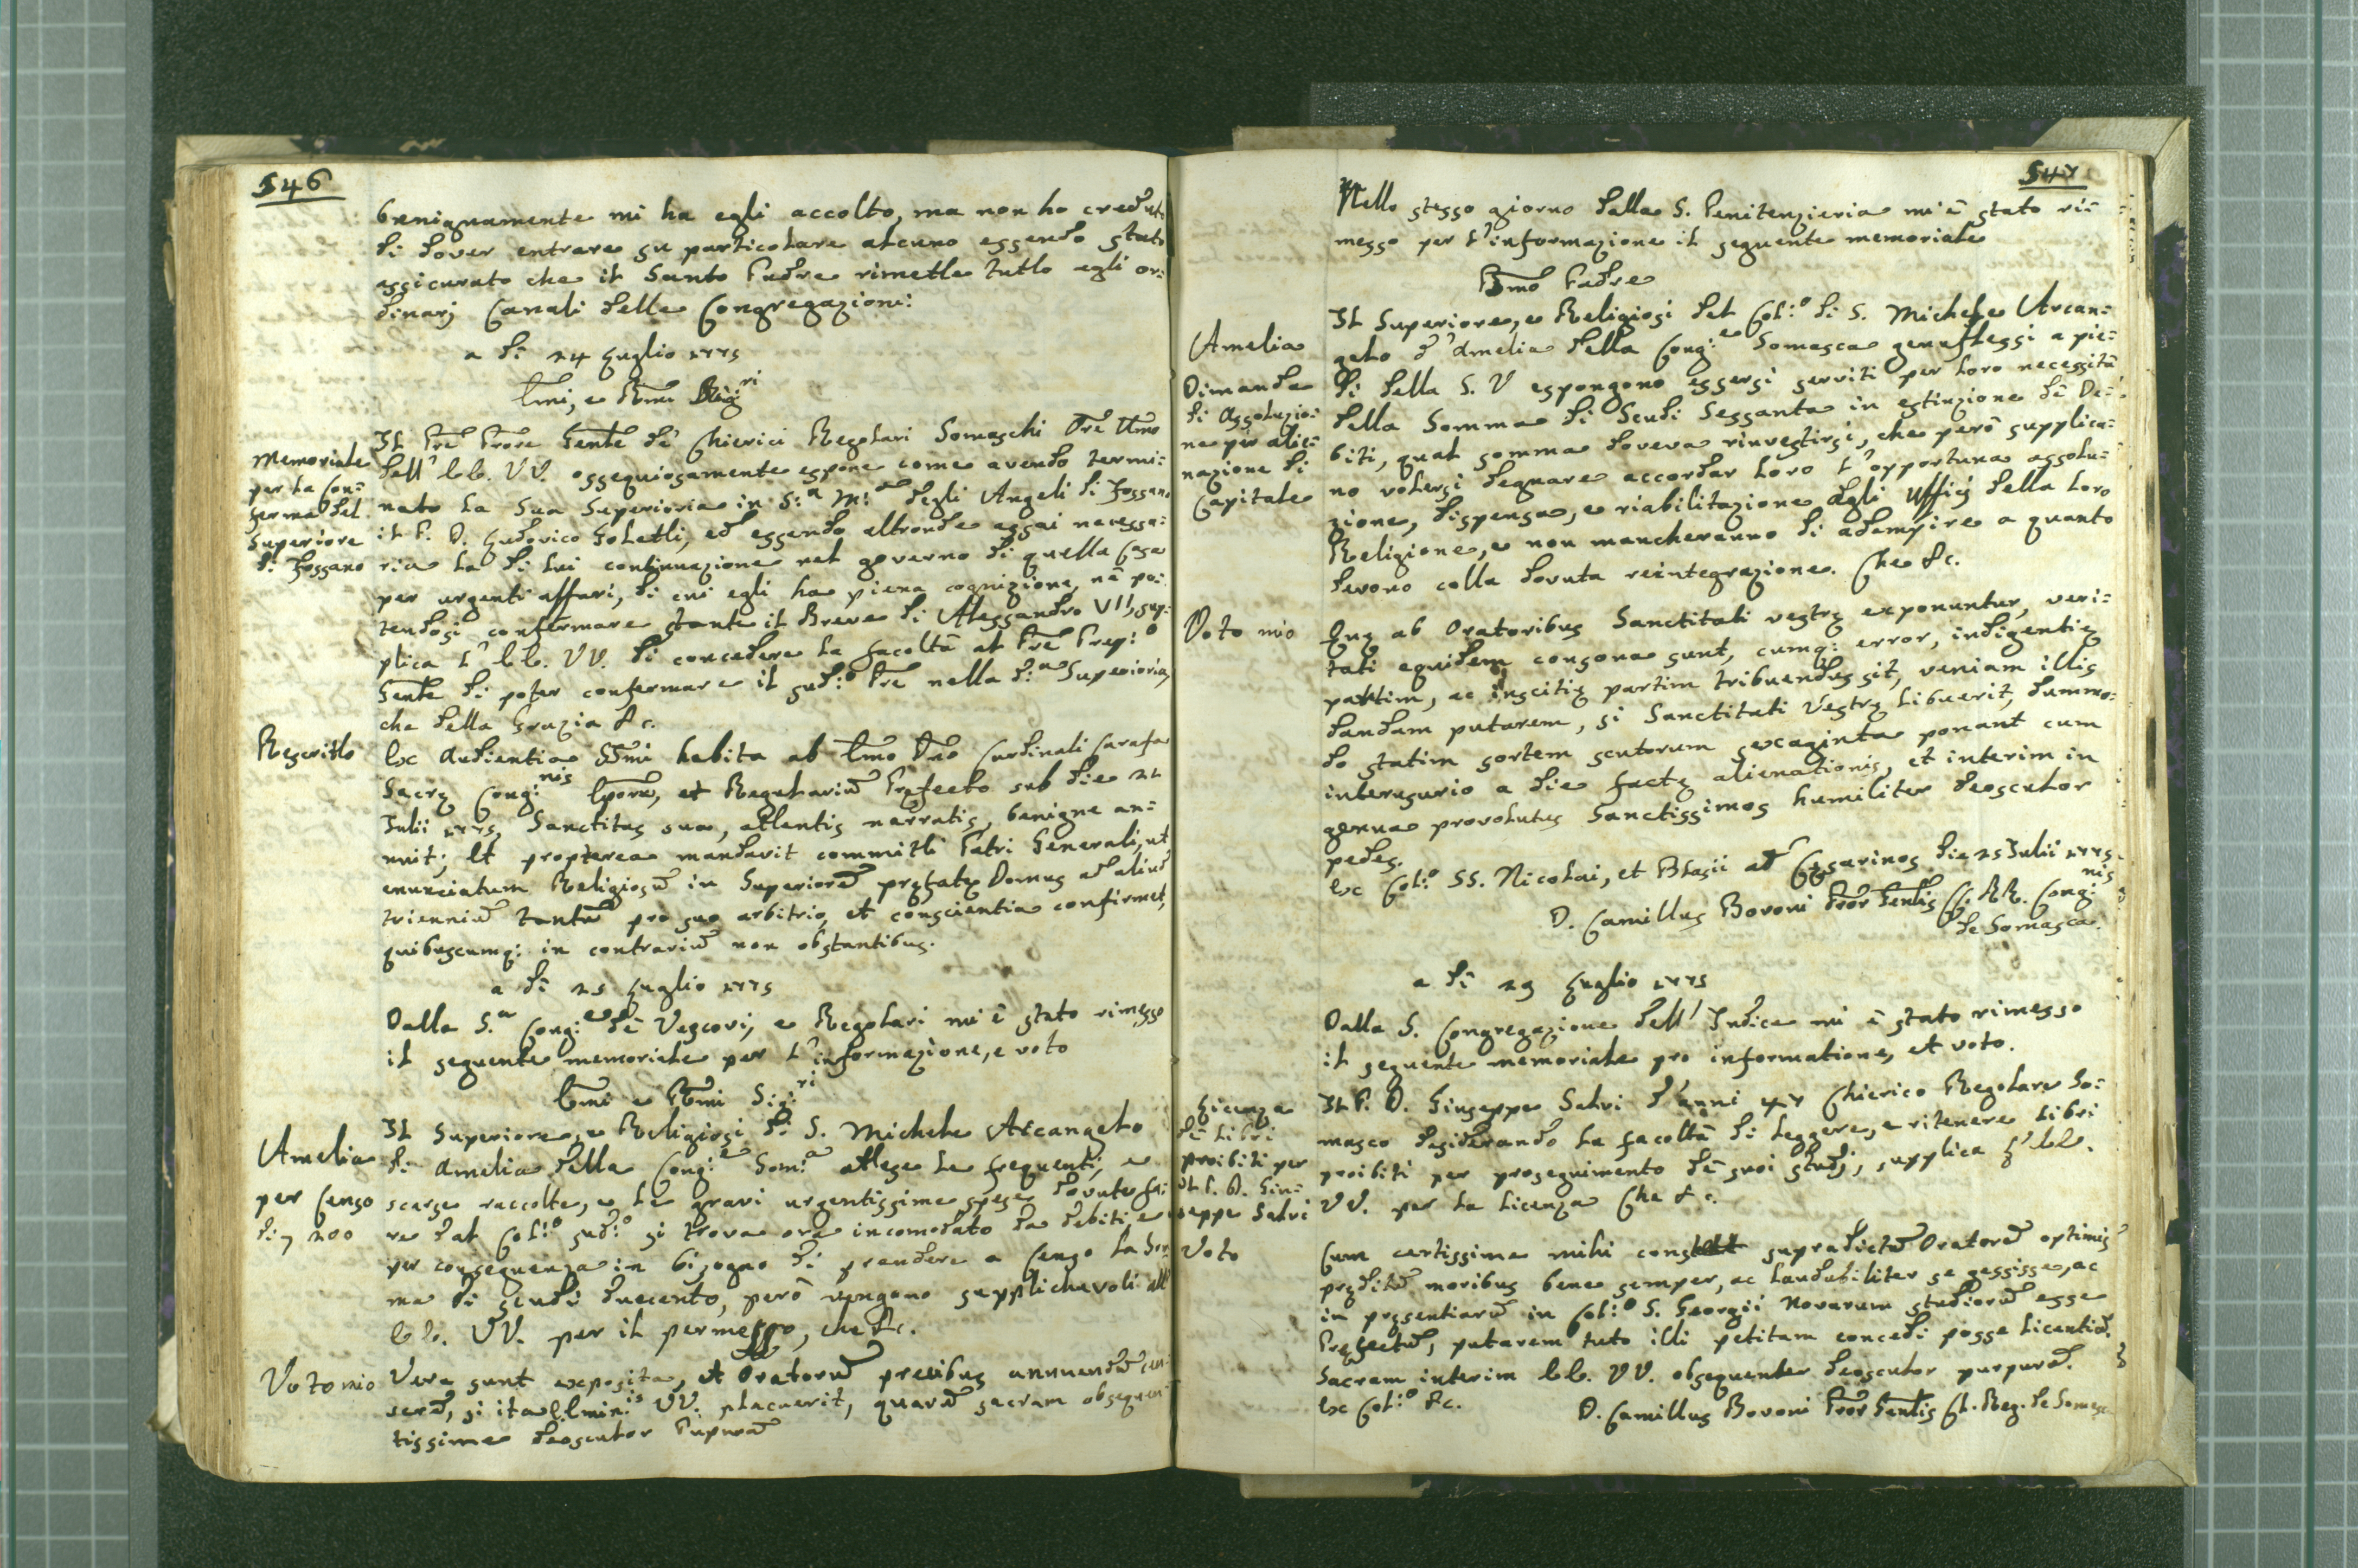 546
benignamente mi ha egli accolto, ma non ho creduto
di dover entrare su particolare alcuno essendo stato
assicurato che il Santo Padre rimette tutto agli or=
dinarj Canali delle Congregazioni:
a dì 24 Luglio 1775
Emi, e Rmi Sigri
Memoriale
per la Con=
ferma del
Superiore
di Fossano
Il Pre Prore Genle de' Chierici Regolari Somaschi Ore Umo
dell' EE. VV. ossequiosamente espone come avendo termi=
nato la sua Superioria in S:a M:a degli Angeli di Fossano
il P. D. Ludovico Soletti, ed essendo altronde assai necessa=
ria la di lui continuazione nel governo di quella Casa
per urgenti affari, di cui egli ha piena cognizione, nè po=
tendosi confermare stante il Breve di Alessandro VII, sup=
plica l' EE. VV. di concedere la facoltà al Pre Prep:o
Genle di poter confermare il sud:o Pre nella d:a Superioria,
che della Grazia &c.
Rescritto
Ex Audientia SSmi habita ab Emo Dno Cardinali Carafa
Sacrę Cong:nis Eporū, et Regulariū Pręfecto sub die 21
Julii 1775, Sanctitas sua, attentis narratis, benigne an=
nuit; Et propterea mandavit committi Patri Generali, ut
enunciatum Religiosū in Superiorē prętatę Domus ad aliud
trienniū tantū pro suo arbitrio, et conscientia confirmet,
quibuscumq: in contrariū non obstantibus.
a dì 25 Luglio 1775
Dalla S.a Cong:e de' Vescovi, e Regolari mi è stato rimesso
il seguente memoriale per l'informazione, e voto
Emi e Rmi Sig:ri
Amelia
per Censo
di 200
Il Superiore, e Religiosi di S. Michele Arcangelo
di Amelia della Cong:e Som:a attese le frequenti, e
scarse raccolte, e le gravi urgentissime spese dovute fa=
re dal Col:o sud:o si trova ora incomodato da debiti, e
per conseguenza in bisogno di prendere a Censo la Som=
ma di scudi duecento, però vengono supplichevoli all'
EE. VV. per il permesso, che &c.
Voto mio
Vera sunt exposita, et Oratorū precibus annuendū cen=
serē, si ita Emin:is VV. placuerit, quarū sacram obsequen=
tissime deosculor Purpurā
547
Nello stesso giorno dalla S. Penitenzieria mi è stato ri=
messo per l'informazione il seguente memoriale
Bmo Padre
Amelia
Dimanda
di Assoluzio=
ne per alie=
nazione di
Capitale
Il Superiore, e Religiosi del Col:o di S. Michele Arcan=
gelo d'Amelia della Cong:e Somasca genuflessi a pie=
di della S. V espongono essersi serviti per loro necessità
della Somma di Scudi Sessanta in estinzione de' De=
biti, qual somma doveva rinvestirsi, che però supplica=
no volersi degnare accordar loro l'opportuna assolu=
zione, dispensa, e riabilitazione dgli Uffizj della loro
Religione, e non mancheranno di adempire a quanto
devono colla dovuta reintegrazione. Che &c.
Voto mio
Quę ab Oratoribus Sanctitati vestrę exponuntur, veri=
tati equidem consona sunt, cumq: error, indigentię
partim, ac inscitię partim tribuendus sit, veniam illis
dandam putarem, si Sanctitati Vestrę libuerit, dummo=
do statim sortem scutorum sexaginta ponant cum
interusurio a die factę alienationis, et interim in
genua provolutus Sanctissimos humiliter deosculor
pedes.
Ex Col:o SS. Nicolai, et Blasii ad Cęsarinos die 25 Julii 1775.
D. Camillus Bovoni Pror Genlis CC. RR. Cong:nis
de Somasca.
a dì 29 Luglio 1775
Dalla S. Congregazione dell' Indice mi è stato rimesso
il seguente memoriale pro informatione, et voto.
Licenza
de' Libri
proibiti per
il P. D. Giu=
seppe Salvi
Il P. D. Giuseppe Salvi d'anni 47 Chierico Regolare So=
masco desiderando la facoltà di leggere, e ritenere libri
proibiti per proseguimento de' suoi studj, supplica l' EE.
VV. per la licenza Che &c.
Voto
Cum certissime mihi constet supradictū Oratorē optimis
pręditū moribus bene semper, ac laudabiliter se gessisse, ac
in pręsentiarū in Col:o S. Georgii Novarum studiorū esse
Pręfectū, putarem tuto illi petitam concedi posse licentiā.
Sacram interim EE. VV. obsequenter deosculor purpurā.
Ex Col:o &c.
D. Camillus Bovoni Pror Genlis Cl. Reg. de Somasc